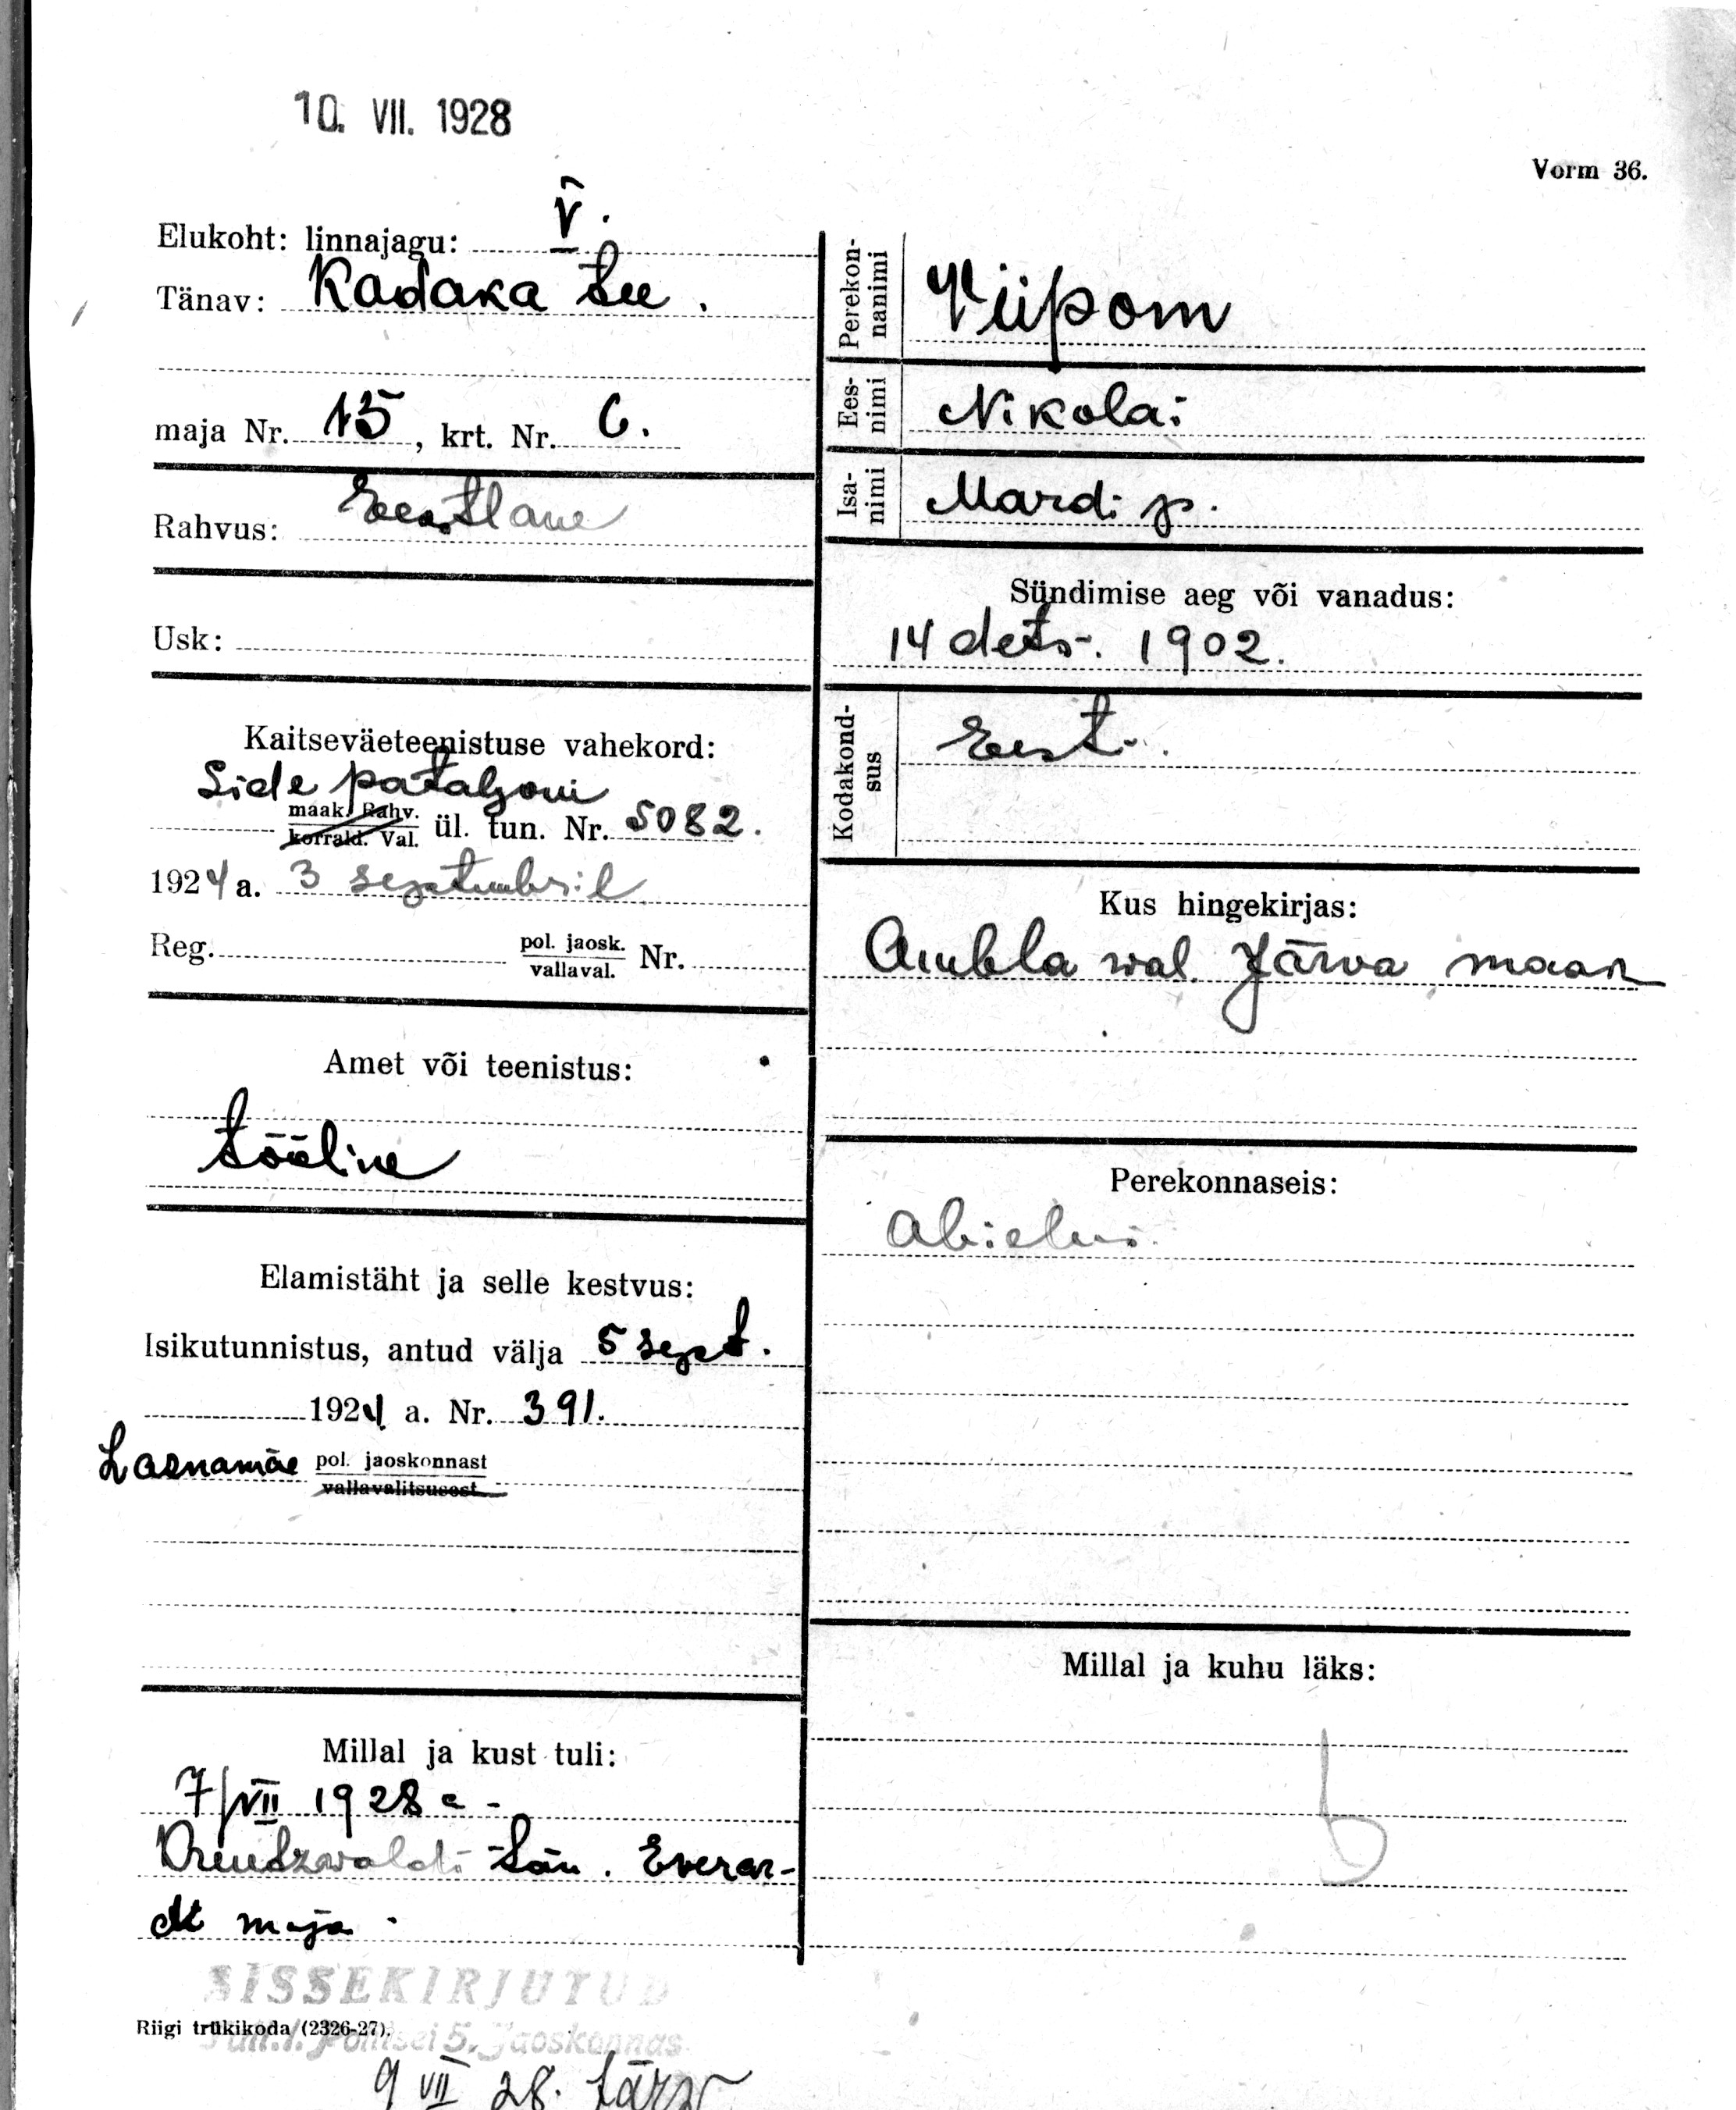 10. VII. 1928
Vorm 36.
Elukoht: linnajagu: V.
Tänav: Kadaka tee.
maja Nr. 15, krt. Nr. 6.
Rahvus: Eestlane
Usk:
Kaitseväeteenistuse vahekord:
Side pataljoni
maak. Rahv.
korrald. Val.
ül. tun. Nr. 5082.
1924 a. 3 septembril
Reg. pol. jaosk. Nr.
vallaval.
Amet või teenistus:
tööline
Elamistäht ja selle kestvus:
Isikutunnistus, antud välja 5 sept.
1924 a. Nr. 391.
Lasnamäe pol. jaoskonnast
vallavalitsusest
Millal ja kust tuli:
7/VII 1928 a -
Kreutzwaldi tän. Everar-
dt maja.
SISSEKIRJUTUD
Riigi trükikoda (2326-27).
Politsei 5. Jaoskonnas
9 VII 28.
Perekon-
nanimi
Viipom
Ees-
nimi
Nikolai
Isa-
nimi
Mardi p.
Sündimise aeg või vanadus:
14 dets. 1902.
Kodakond-
sus
Eesti.
Kus hingekirjas:
Ambla wal. Järva maan
Perekonnaseis:
abielus.
Millal ja kuhu läks: